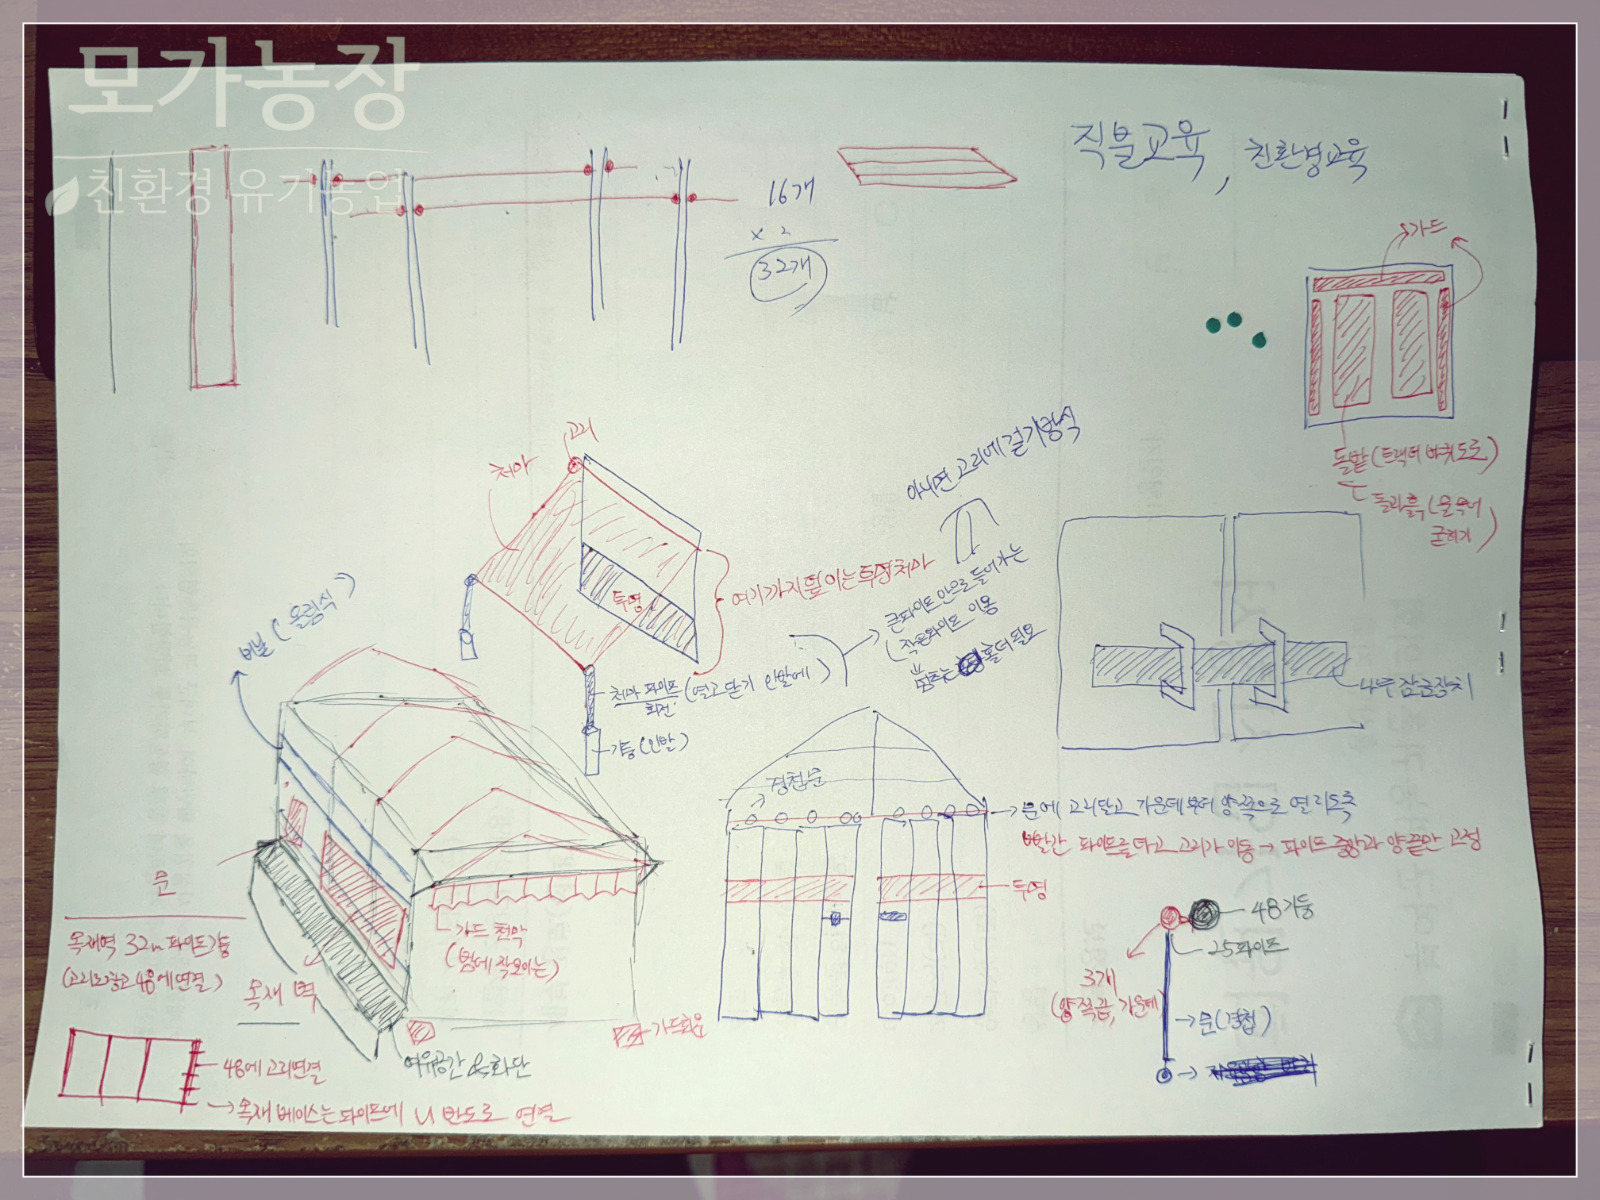 모가농장
친환경 유기농업
직불교육, 친환경교육
16개
x 2
32개
가드
돌밭 (트랙터 바퀴도로)
고리
처마
아니면 고리에 걸기방식
투명
큰파이프 안으로 들어가는
작은파이프 이용
멈추는 홀더 필요
처마 파이프 (열고 닫기 인발에)
회전
기둥 (인발)
비닐 (올림식)
4무 잠금장치
경첩문
문에 고리달고 가운데부터 양쪽으로 열리도록
빨간 파이프를 타고 고리가 이동 → 파이프 중앙과 양끝만 고정
투명
48기둥
25파이프
3개
(양쪽끝, 가운데)
문 (경첩)
가드 천막
(밤에 작모이는)
문
목재 벽
48에 고리연결
여유공간 & 화단
가드화분
목재 베이스는 파이프에 U 반도로 연결